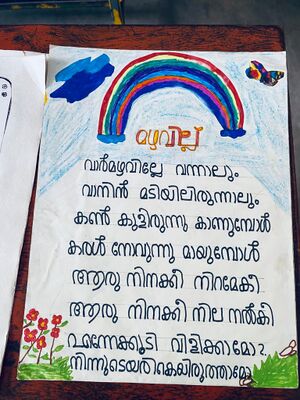 മഴവില്ല്
വാർമഴവില്ലേ വന്നാലും
വാനിൻ മടിയിലിരുന്നാലും
കൺ കുളിരുന്നു കാണുമ്പോൾ
കരൾ നോവുന്നു മായുമ്പോൾ
ആരു നിനക്കീ നിറമേകി
ആരു നിനക്കീ നില നൽകി
എന്നേക്കൂടി വിളിക്കാമോ?
നിന്നുടെയരികിലിരുത്താമോ